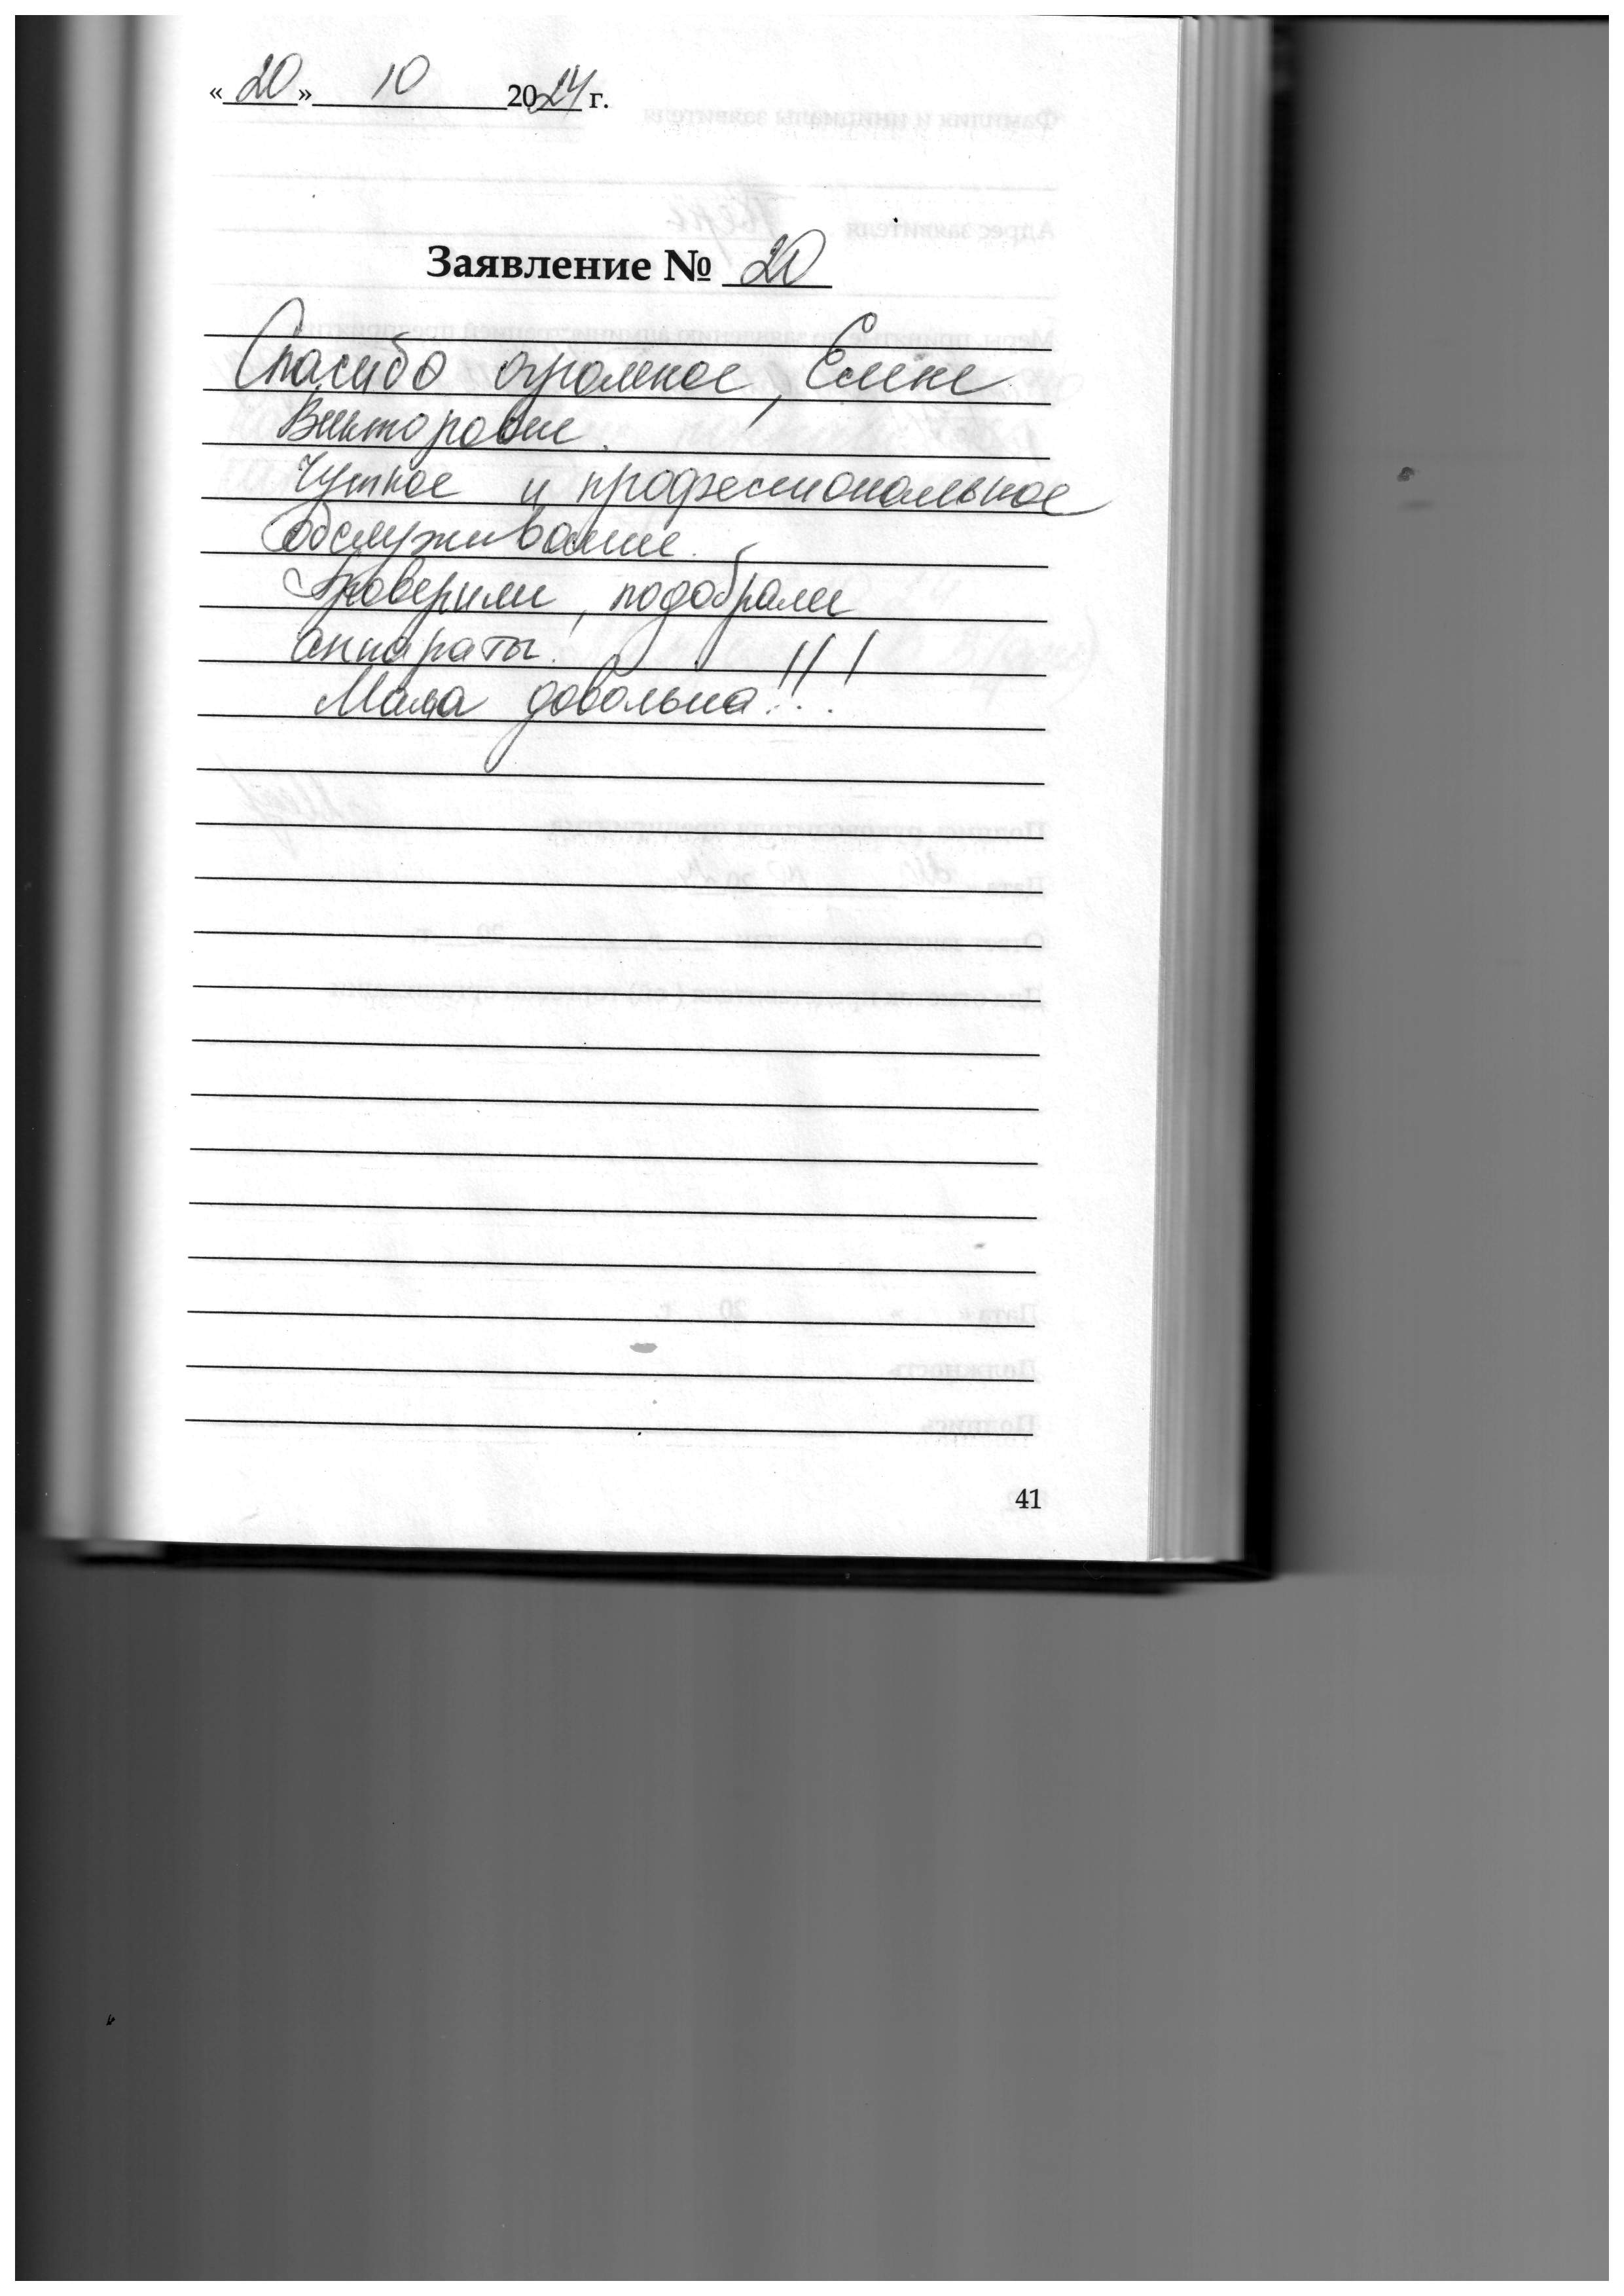 «20» 10 2024 г.
Заявление № 20
Спасибо огромное, Елене
Викторовне.
Чуткое и профессиональное
обслуживание.
Проверили, подобрали
аппараты.
Мама довольна!!!
41